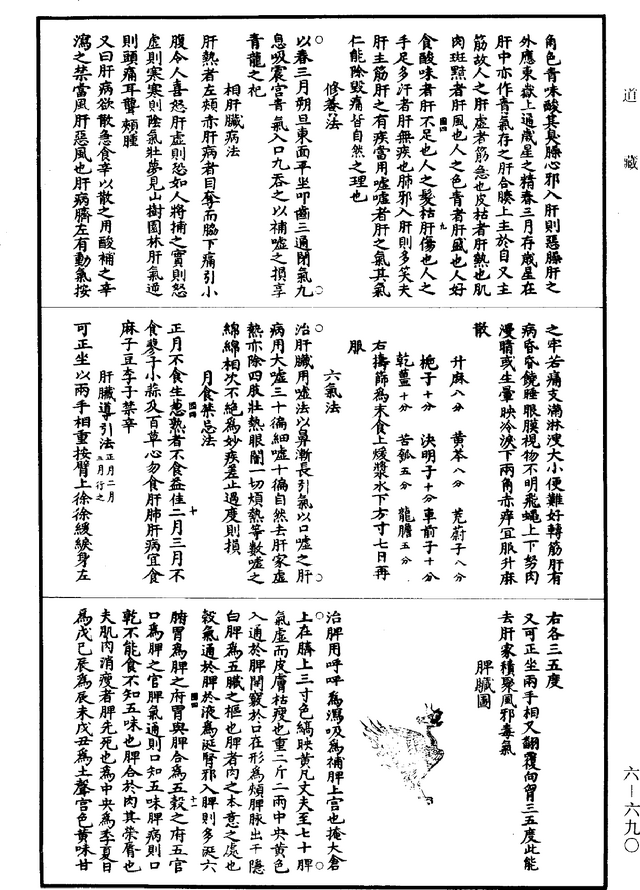 道藏
角色青味酸其臭臊心邪入肝則惡臊肝之
外應東嶽上通歲星之精春三月存歲星在
肝中亦作青氣存之肝合膝上主於目又主
筋故人之肝虛者筋急也皮枯者肝熱也肌
肉斑黯者肝風也人之色青者肝盛也人好
食酸味者肝不足也人之髮枯肝傷也人之
手足多汗者肝無疾也肺邪入肝則多笑夫
肝主筋肝之有疾當用噓噓者肝之氣其氣
仁能除毀痛皆自然之理也
修養法
以春三月朔旦東面平坐叩齒三通閉氣九
息吸震宮青氣入口九吞之以補噓之損享
青龍之祀
相肝臟病法
肝熱者左頰赤肝病者目奪而脇下痛引小
腹令人喜怒肝虛則恐如人將捕之實則怒
虛則寒寒則陰氣壯夢見山樹園林肝氣逆
則頭痛耳聾頰腫
又曰肝病欲散急食辛以散之用酸補之辛
瀉之禁當風肝惡風也肝病臍左有動氣按
之牢若痛支滿淋溲大小便難好轉筋肝有
病昏昏饒睡眼膜視物不明飛蠅上下努肉
漫睛或生暈映冷淚下兩角赤痒宜服升麻
散
升麻八分　黄芩八分　茺蔚子八分
梔子十分　決明子十分　車前子十分
乾薑十分　苦瓠五分　龍膽五分
右擣篩為末食上煖漿水下方寸七日再
服
六氣法
治肝臟用噓法以鼻漸長引氣以口噓之肝
病用大噓三十徧細噓十徧自然去肝家虛
熱亦除四肢壯熱眼闇一切煩熱等數噓之
綿綿相次不絕為妙疾差止過度則損
月食禁忌法
正月不食生葱熟者不食益佳二月三月不
食蓼子小蒜及百草心勿食肝肺肝病宜食
麻子豆李子禁辛
肝臟導引法正月二月三月行之
可正坐以兩手相重按臂上徐徐緩緩身左
右各三五度
又可正坐兩手相叉翻覆向胷三五度此能
去肝家積聚風邪毒氣
脾臟圖
治脾用呼呼為瀉吸為補脾上宮也掩大倉
上在臍上三寸色縞映黄凡丈夫至七十脾
氣虛而皮膚枯瘦也重二斤二兩中央黃色
入通於脾開竅於口在形為頰脾脉出于隱
白脾為五臟之樞也脾者肉之本意之處也
穀氣通於脾於液為涎腎邪入脾則多涎六
腑胃為脾之府胃與脾合為五穀之府五官
口為脾之官脾氣通則口知五味脾病則口
乾不能食不知五味也脾合於肉其榮脣也
夫肌肉消瘦者脾先死也為中央為季夏日
為戊己辰為辰未戌丑為土聲宮色黄味甘
六—六九〇